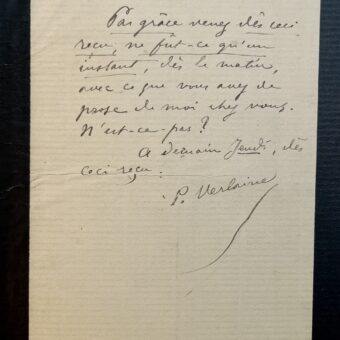 Par grâce venez dès ceci
reçu, ne fût-ce qu'un
instant, dès le matin,
avec ce que vous avez de
prose de moi chez vous.
N'est-ce-pas?
A demain Jeudi, dès
ceci reçu.
P. Verlaine